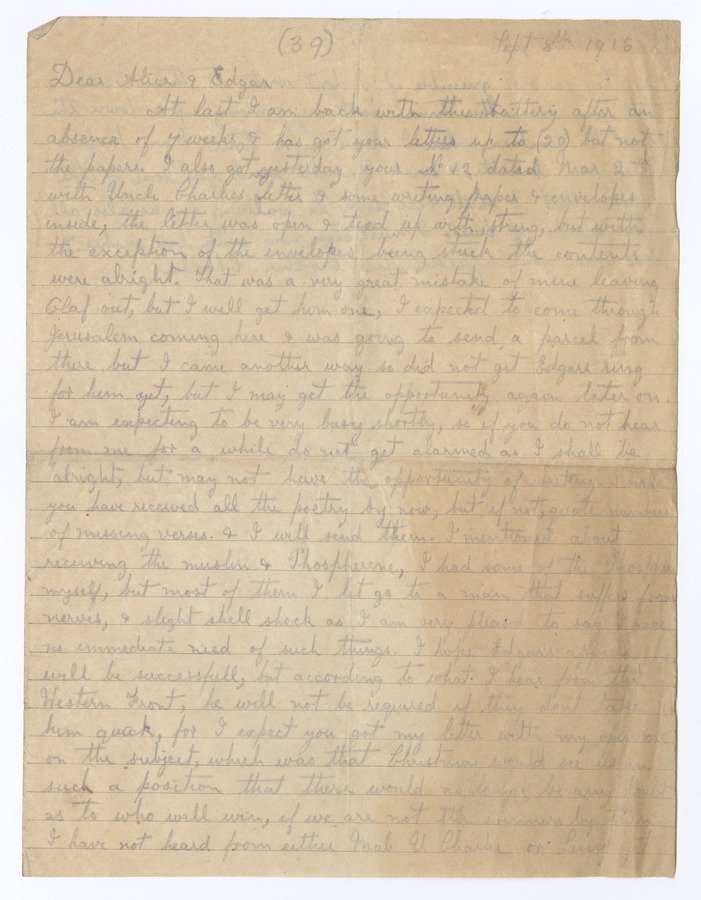 (39)
Sept 8th 1918
Dear Alice & Edgar
At last I am back with the battery after an
absence of 7 weeks, & has got your letters up to (20) but not
the papers. I also got yesterday your No 12 dated Mar 2nd
with Uncle Charlies letter & some writing paper & envelopes
inside, the letter was open & tied up with string, but with
the exception of the envelopes being stuck the contents
were alright. That was a very great mistake of mine leaving
Olaf out, but I will get him one, I expected to come through
Jerusalem coming here & was going to send a parcel from
there but I came another way so did not get Edgars ring
for him yet, but I may get the opportunity again later on.
I am expecting to be very busy shortly, so if you do not hear
from me for a while do not get alarmed as I shall be
alright, but may not have the opportunity of writing. I hope
you have received all the poetry by now, but if not, quote numbers
of missing verses. & I will send them. I mentioned about
receiving the muslin & Phospherine, I had some of the
myself, but most of them I let go to a man that suffers from
nerves, & slight shell shock as I am very pleased to say I have
no immediate need of such things. I hope Edgars appeal
will be successfull, but according to what I hear from the
Western Front, he will not be required if they dont take
him quick, for I expect you got my letter with my opinion
on the subject, which was that Christmas would see us in
such a position that there would no longer be any doubt
as to who will win, if we are not the winners by then.
I have not heard from either Mab U Charlie or yet